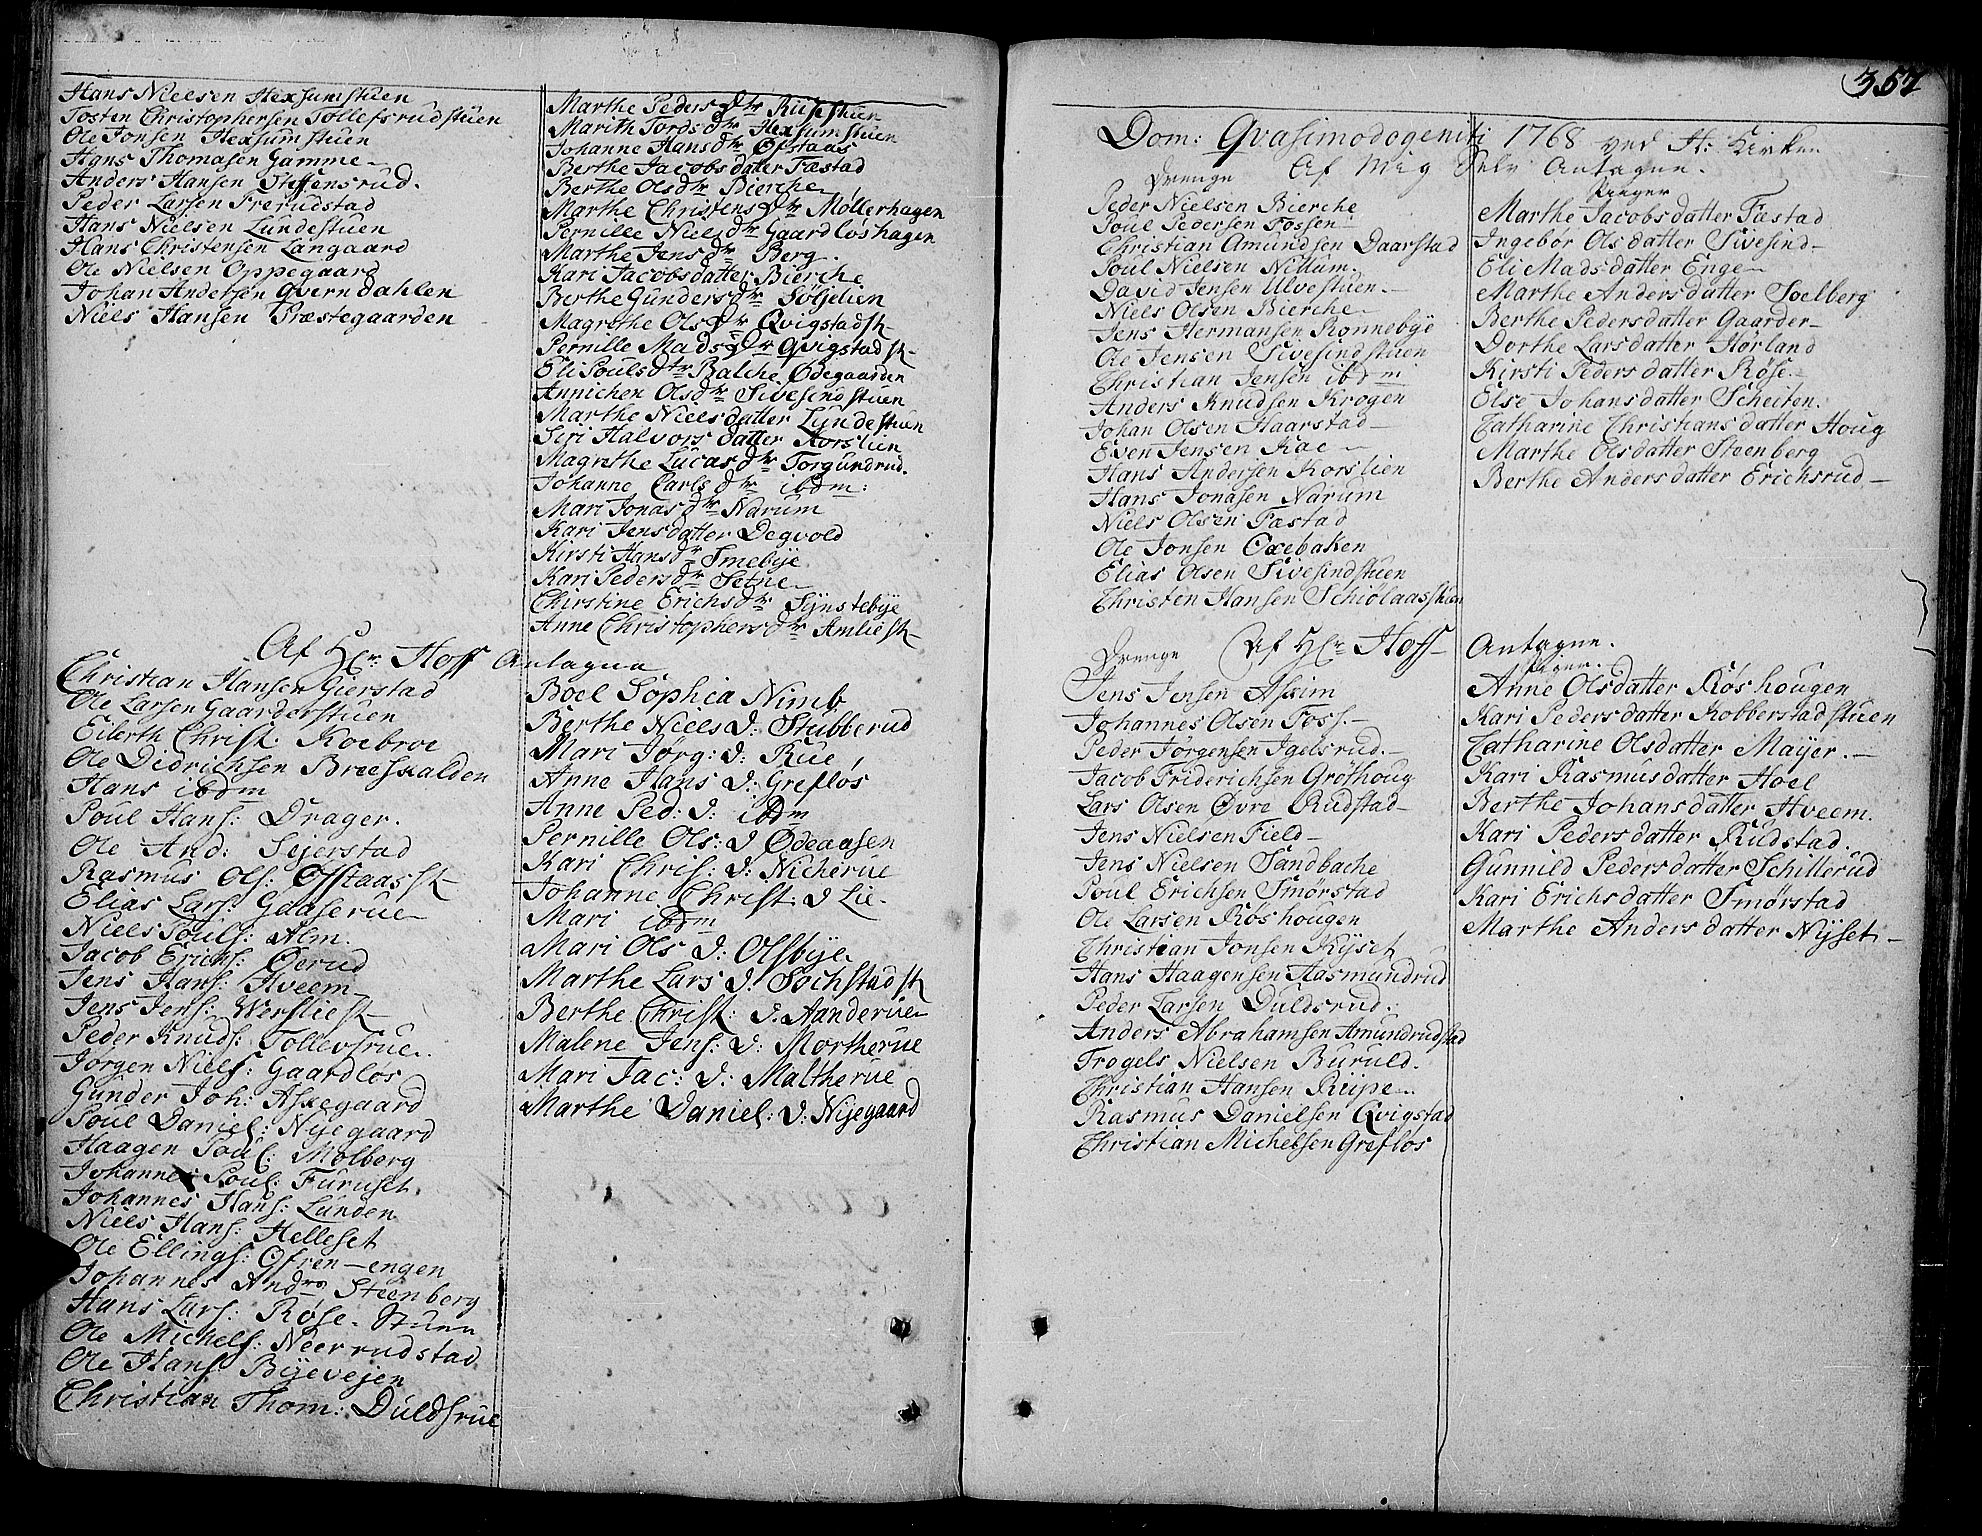 Hans Nielsen Hexsumstuen
Tosten Christophersen Tollefsrudstuen
Ole Jonsen Hexsumstuen
Hans Thomasen Gamme
Anders Hansen Steffensrud.
Peder Larsen Prerudstad
Hans Nielsen Lundestuen
Hans Christensen Langaard
Ole Nielsen Oppegaard
Johan Andersen Qverndahlen
Niels Hansen Præstegaarden
Marthe Peders dtr Rustestuen
Marith Tords dtr Hexsumstuen
Johanne Hans dtr Ofstaas
Berthe Jacobs datter Fæstad
Berthe Ols dtr Bierche
Marthe Christens dtr Møllerhagen
Pernille Niels dr Gaardloshagen
Marthe Jens dr Berg.
Kari Jacobsdatter Bierche
Berthe Gunders dr Søljelien
Magrethe Ols dr Qvigstad st
Pernille Mads dr Qvigstad st
Eli Pouls dtr Balche Ødegaarden
Annichen Ols dtr Sivesindstuen
Marthe Niels datter Lundestuen
Siri Halvors datter Korslien
Magrethe Lucas dtr Torgundrud.
Johanne Carls dtr ibdm:
Mari Jonas dtr Narum
Kari Jensdatter Degvold
Kirsti Hans dr Smebye
Kari Peders dr Setne
Christine Erichs dtr Synstebye
Anne Christophers dtr Amlie st
Af Hr. Hoff Antagne
Christian Hansen Gierstad
Ole Larsen Gaarderstuen
Eilerth Christ: Koebroe
Ole Didrichsen Bræskalden
Hans ibdm
Poul Hans: Drager.
Ole And: Sejerstad
Rasmus Ols: Ofstaas st
Elias Lars: Gaaserue
Niels Pouls: Alm.
Jacob Erichs: Øerud
Jens Hans: Hveem
Jens Jens: Werslie st
Peder Knuds: Tollevsrue.
Jørgen Niels: Gaardlos
Gunder Joh: Askegaard
Poul Daniel: Nyegaard
Haagen Poul: Molberg
Johannes Poul: Furuset.
Johannes Hans: Lunden
Niels Hans: Helleset
Ole Ellings: Ofren-engen
Johannes Andrs Steenberg
Hans Lars: Røse-Stuen
Ole Michels: Neerrudstad
Ole Hans: Byevejen
Christian Thom: Duldsrue
Boel Sophia Nimb
Berthe Niels D: Stubberud
Mari Jørg: D: Rue,
Anne Hans D: Greflos
Anne Ped: D: ibdm
Pernille Ols: D Ødeaasen
Kari Chris: D: Nicherue
Johanne Christ: D Lie
Mari ibdm
Mari Ols D: Olsbye
Marthe Lars D: Sochstad st
Berthe Christ: D. Aanderue
Malene Jens: D: Mortherue
Mari Jac: D: Maltherue
Marthe Daniel: D: Nyegaard
357
Dom: Qvasimodogeniti 1768 ved H: Kirken
Af Mig Selv Antagne.
Drenge
Piiger
Peder Nielsen Bierche
Poul Pedersen Fossen
Christian Amundsen Daarstad
Poul Nielsen Nittum.
David Jensen Ulvestuen.
Niels Olsen Bierche
Jens Hermansen Rønnebye
Ole Jensen Sivesindstuen
Christian Jensen ibdm
Anders Knudsen Krogen
Johan Olsen Haarstad
Even Jensen Rae
Hans Andersen Korslien
Hans Jonasen Narum
Niels Olsen Fæstad
Ole Jonsen Oxebaken
Elias Olsen Sivesindstuen
Christen Hansen Schiolaasstuen
Marthe Jacobsdatter Fæstad
Ingebør Olsdatter Sivesind
Eli Madsdatter Enge
Marthe Andersdatter Soelberg
Berthe Pedersdatter Gaarder
Dorthe Larsdatter Horland
Kirsti Pedersdatter Røse
Else Johansdatter Scheiten.
Catharine Christiansdatter Houg
Marthe Olsdatter Steenberg
Berthe Andersdatter Erichsrud
Drenge Af Hr Hoff Antagne.
Piger.
Jens Jensen Askim
Johannes Olsen Foss.
Peder Jørgensen Igelsrud.
Jacob Friderichsen Grøthoug
Lars Olsen Øvre Rudstad
Jens Nielsen Field
Jens Nielsen Sandbache
Poul Erichsen Smørstad
Ole Larsen Røshougen
Christian Jonsen Ryset
Hans Haagensen Aasmundrud
Peder Larsen Duldsrud.
Anders Abrahamsen Amundrudstad
Trogels Nielsen Buruld.
Christian Hansen Rupe
Rasmus Danielsen Qvigstad
Christian Michelsen Greflos
Anne Olsdatter Røshougen
Kari Pedersdatter Kobberstadstuen
Catharine Olsdatter Mayer.
Kari Rasmusdatter Hoel
Berthe Johansdatter Hveem.
Kari Pedersdatter Rudstad.
Gunnild Pedersdatter Schillerud
Kari Erichsdatter Smørstad
Marthe Andersdatter Nyset